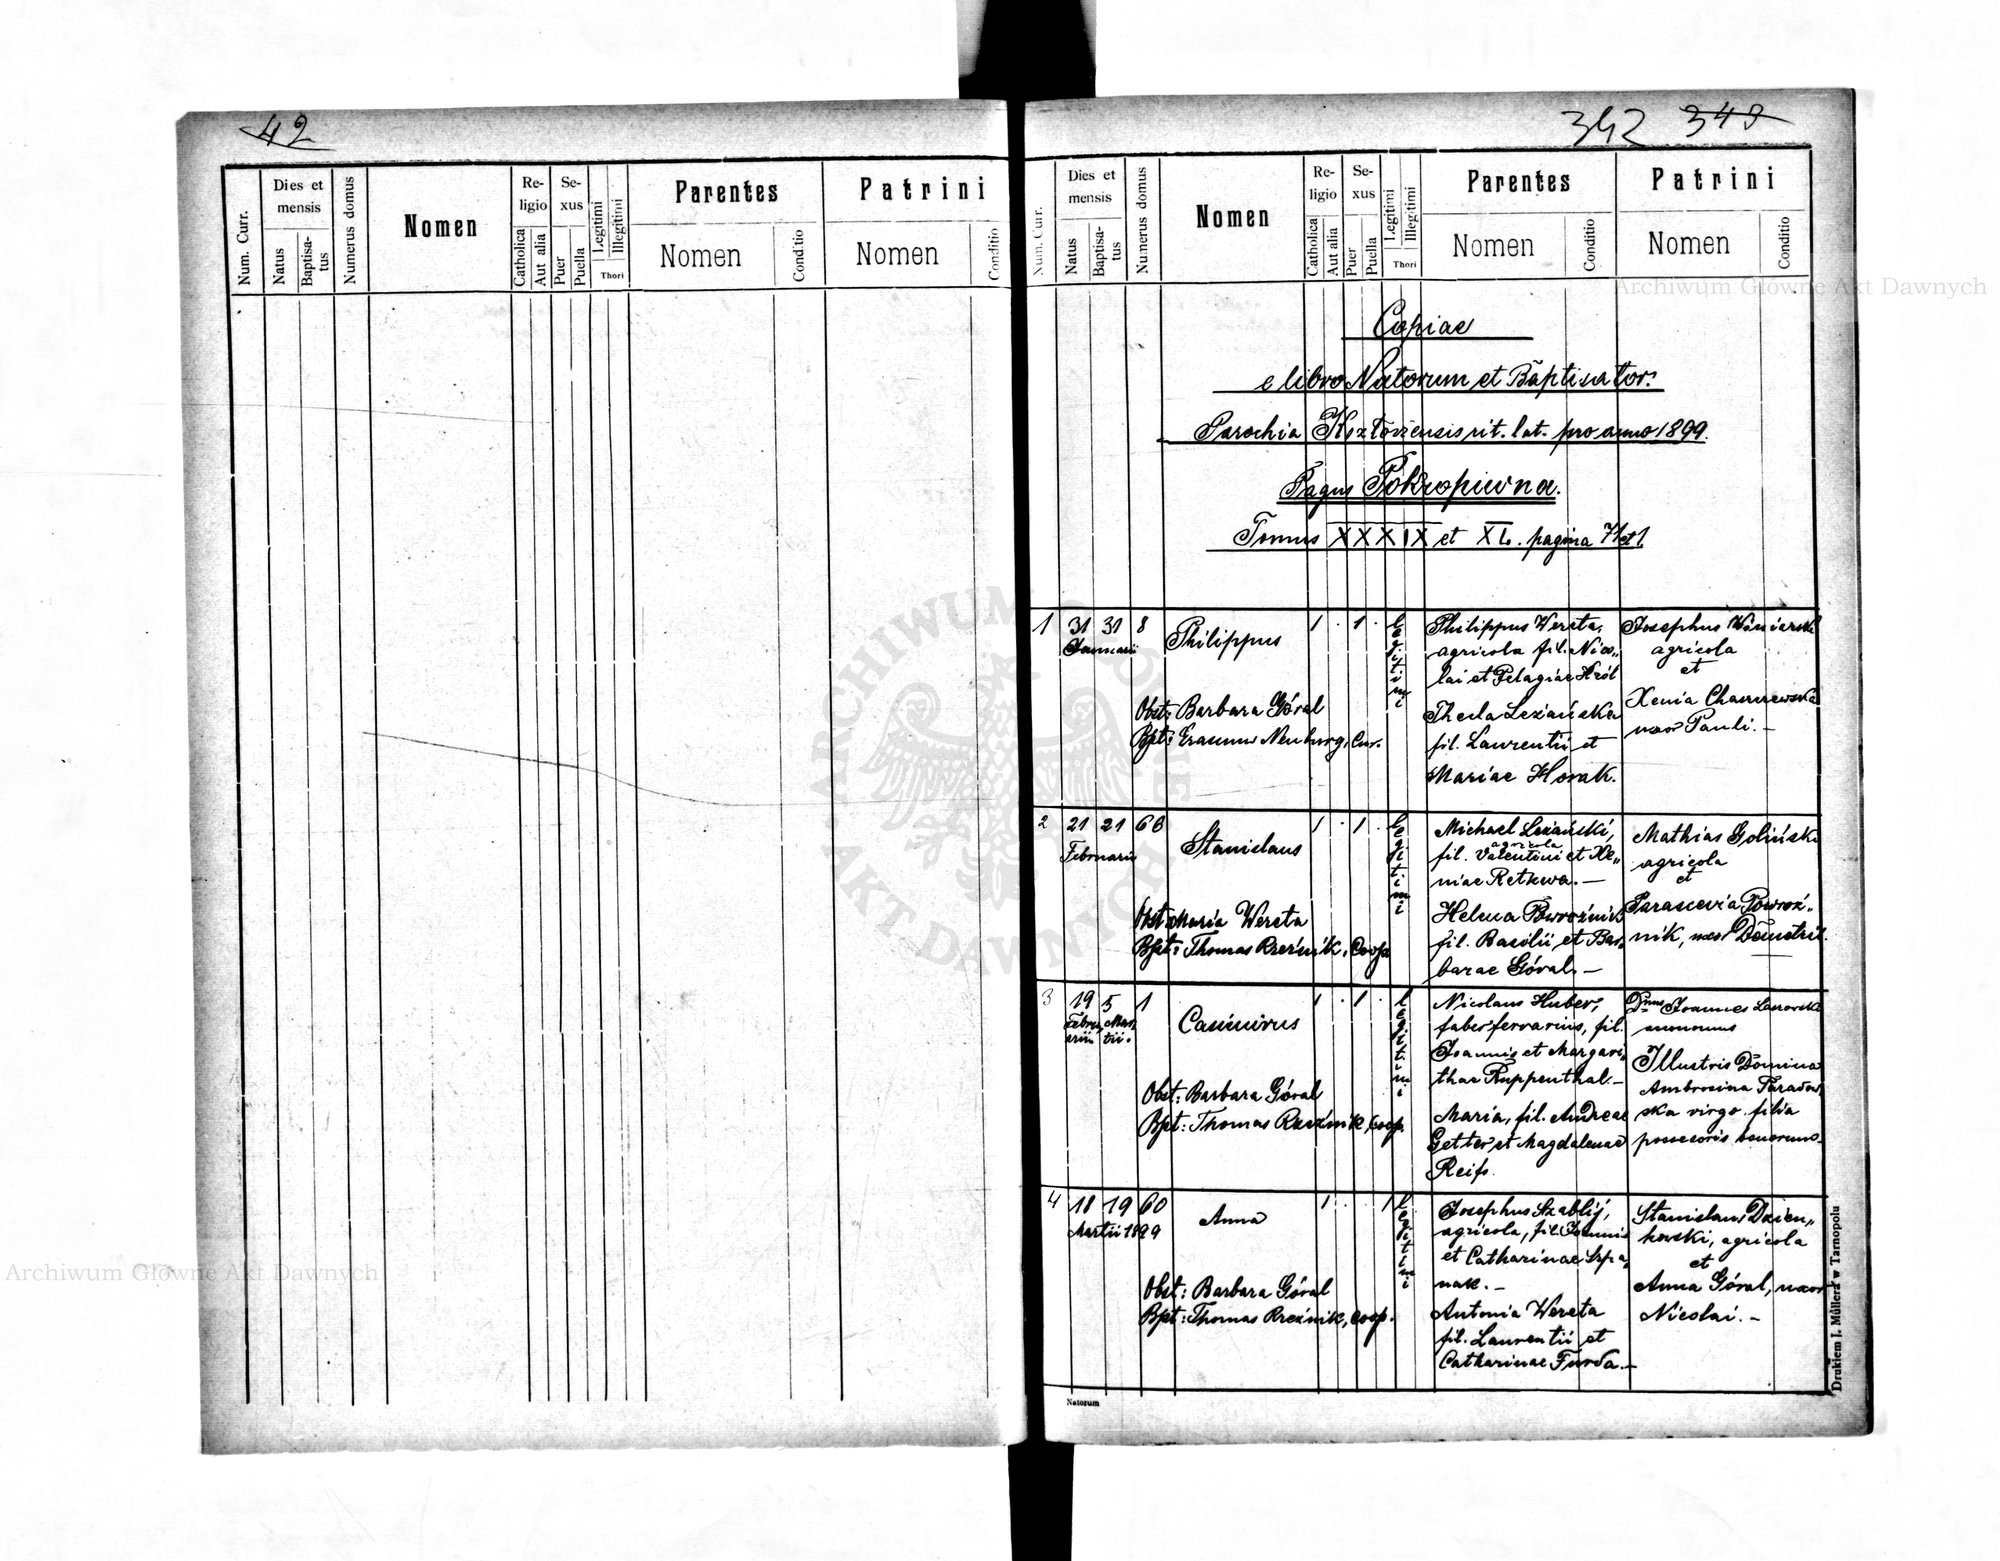 42
Num. Curr.
Dies et mensis
Natus
Baptisa-
tus
Numerus domus
Nomen
Re-
ligio
Catholica
Aut alia
Se-
xus
Puer
Puella
Legitimi
Illegitimi
Thori
Parentes
Nomen
Conditio
Patrini
Nomen
Conditio
342 343
Num. Curr.
Dies et
mensis
Natus
Baptisa-
tus
Numerus domus
Nomen
Re-
ligio
Catholica
Aut alia
Se-
xus
Puer
Puella
Legitimi
Illegitimi
Thori
Parentes
Nomen
Conditio
Patrini
Nomen
Conditio
Copiae
e libro Natorum et Baptisator.
Parochia rit. lat. pro anno 1899.
Pagus Pokropiwna.
Tomus XXXIX et XL. pagina 71 et 1.
1 31 31 8
Januarii
Philippus
1 . 1 . legitimi
Obst: Barbara Góral
Bpt: Erasmus Neuburg, Cur.
Philippus Wereta,
agricola fil. Nico„
lai et Pelagiae Król
Thecla Leżańska
fil. Laurentii et
Mariae Horak.
Josephus
agricola
et
Xenia
uxor Pauli. –
2 21 21 68
Februarii
Stanislaus
1 . 1 . legitimi
Obst: Maria Wereta
Bpt: Thomas Rzeźnik, Coop
Michael Leżański,
agricola
fil. Valentini et Xe„
niae Retkwa. –
Helena Powroźnik
fil. Basilii et Bar„
barae Góral. –
Mathias Goliński
agricola
et
Parascevia Powroź„
nik, uxor Demetrii.
3 19 5 1
Febru„ Mar„
arii tii.
Casimirus
1 . 1 . legitimi
Obst: Barbara Góral
Bpt: Thomas Rzeźnik, coop.
Nicolaus Huber,
faber ferrarius, fil.
Joannis et Margari„
thae Ruppenthal. –
Maria, fil. Andreae
Getter et Magdalenae
Reifs.
Dnus Joannes
Illustris Domina
Ambrosina
ska virgo filia
possesoris bonorum. –
4 18 19 60
Martii 1899
Anna
1 . . 1 legitimi
Obst: Barbara Góral
Bpt: Thomas Rzeźnik, coop.
Josephus Szablij,
agricola, fil. Joannis
et Catharinae Szpa„
nak. –
Antonia Wereta
fil. Laurentii et
Catharinae Furda. –
Stanislaus Dzien„
kowski, agricola
et
Anna Góral, uxor
Nicolai. –
Natorum
Drukiem J. Müllera w Tarnopolu
Archiwum Główne Akt Dawnych
Archiwum Główne Akt Dawnych
ARCHIWUM GŁÓWNE
AKT DAWNYCH